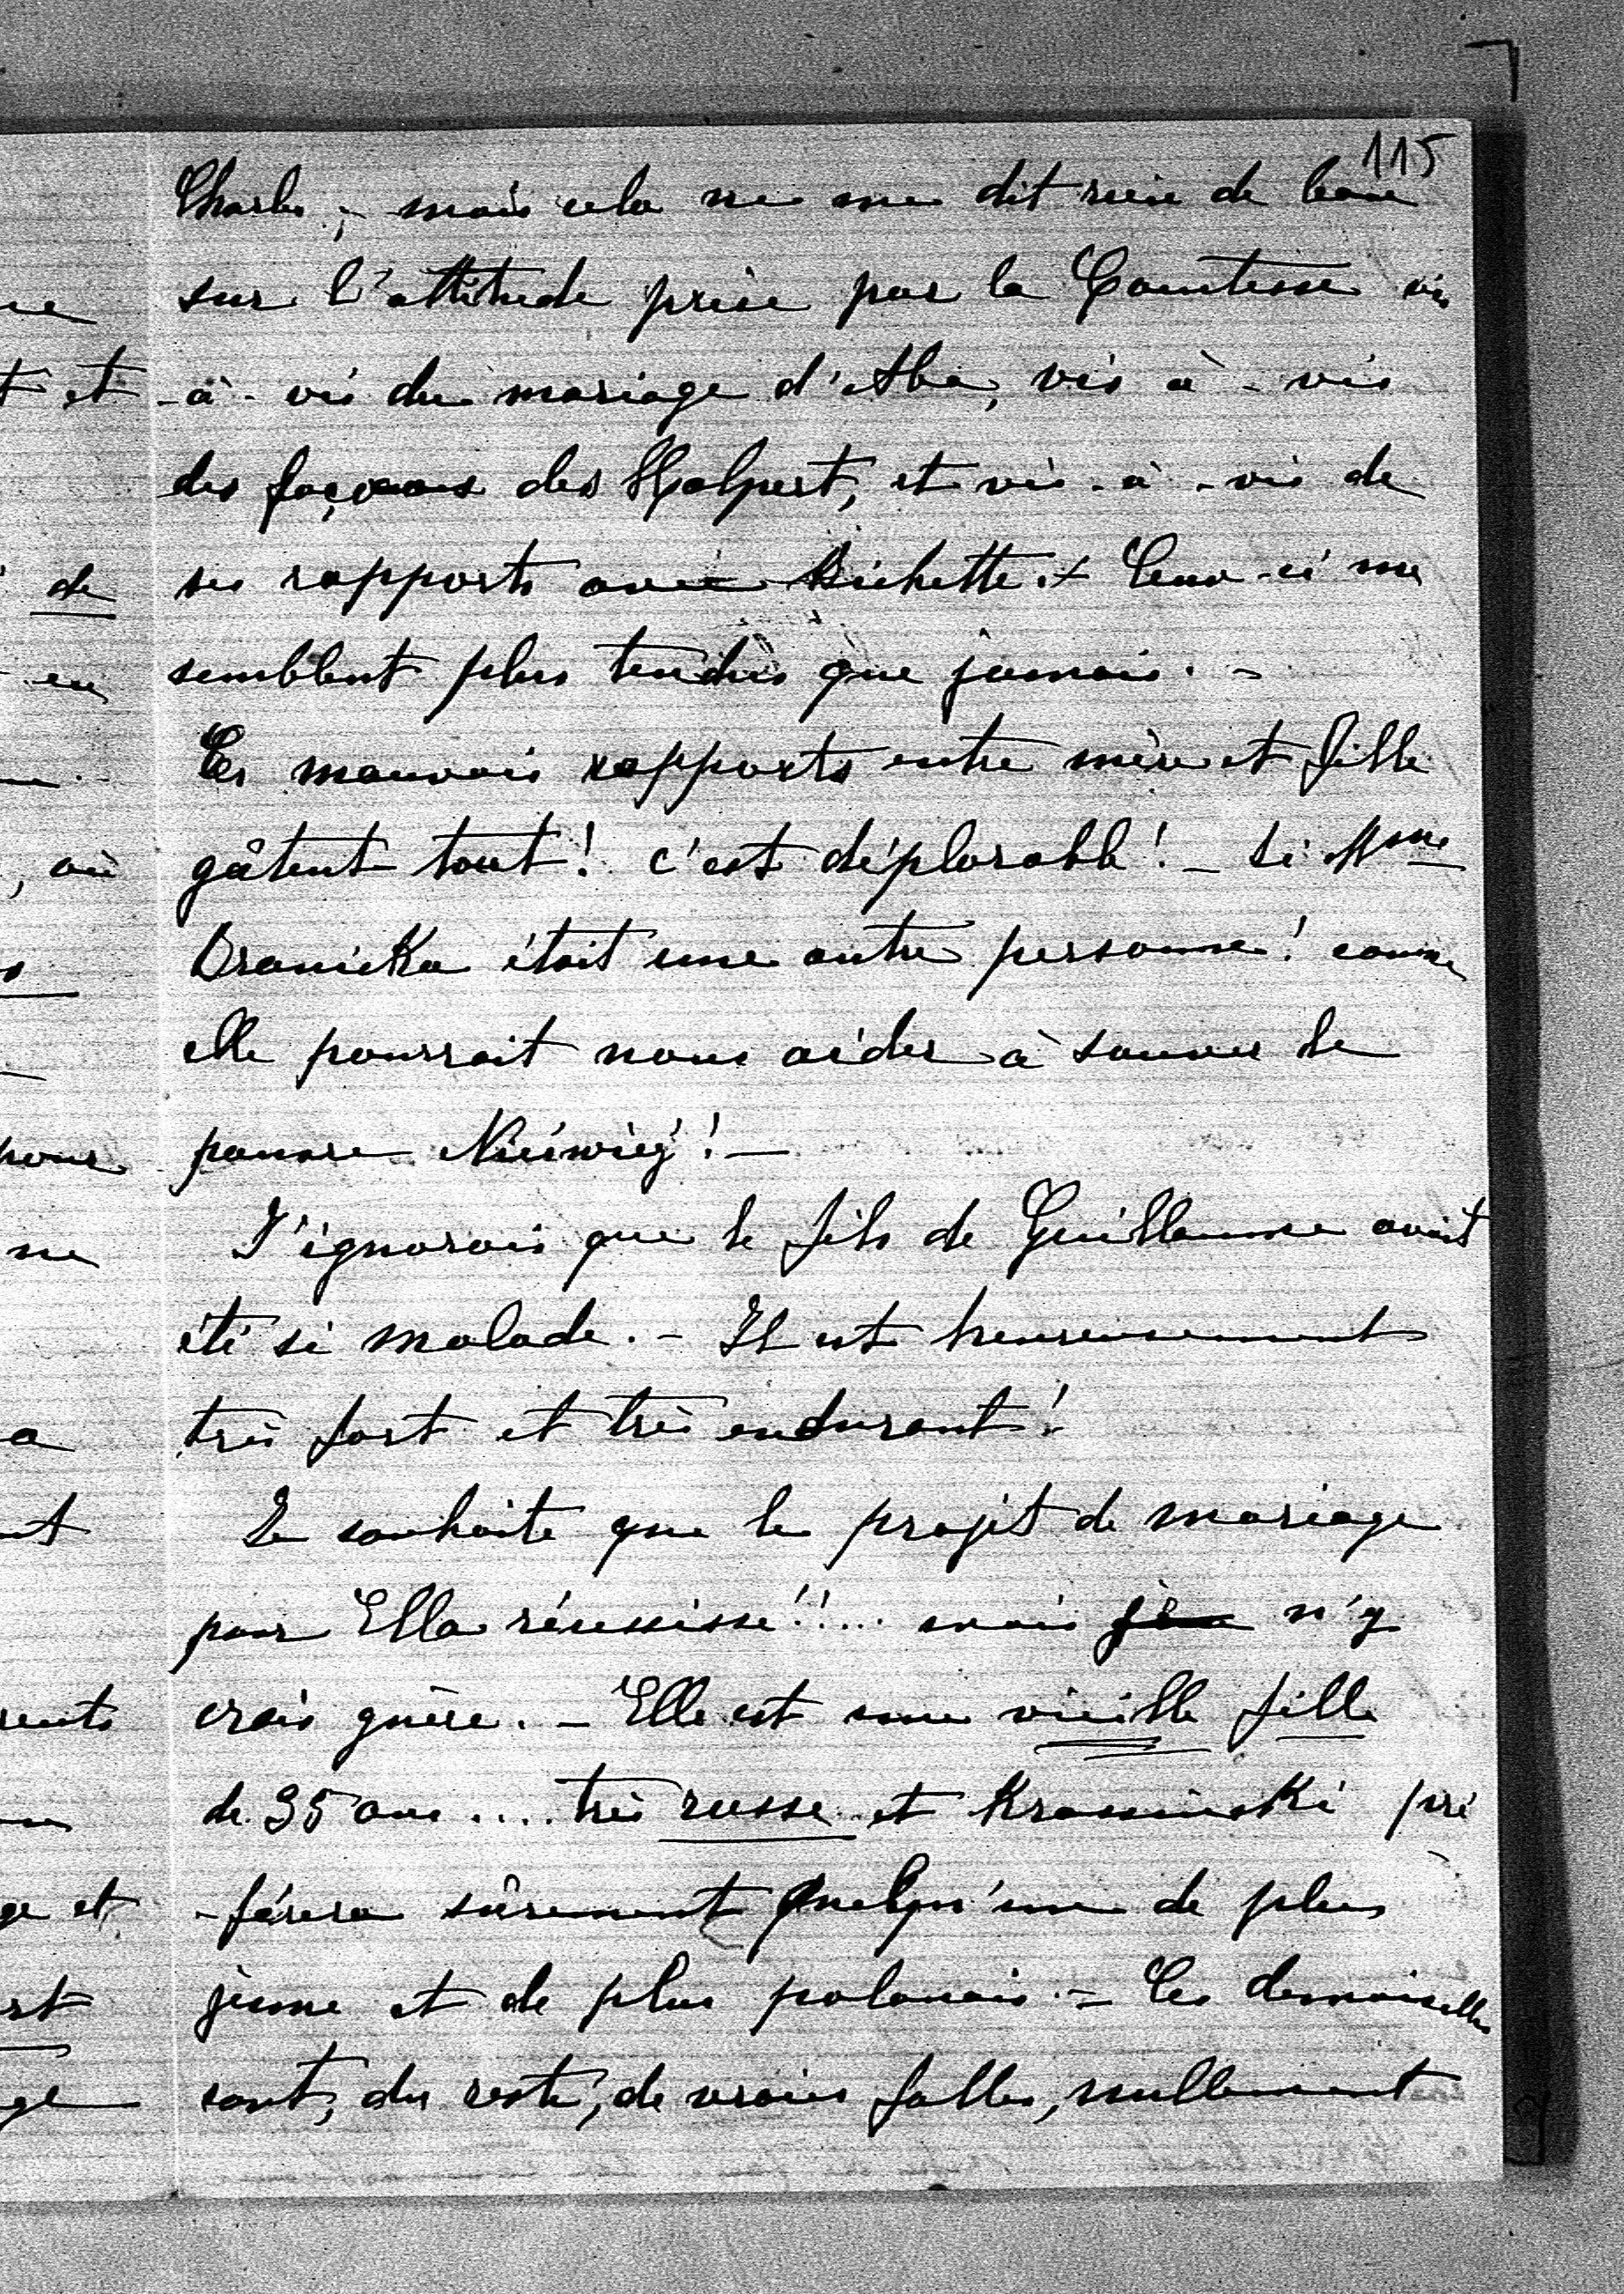 115
Charles ; – mais cela ne me dit rien de beau
sur l'attitude prise par la Comtesse vis
-à-vis du mariage d'Aba, vis à-vis
des façons des Halpert, et vis-à-vis de
ses rapports avec Bichette. Ceux-ci me
semblent plus tendus que jamais. –
Ces mauvais rapports entre mère et fille
gâtent tout ! c'est déplorable ! – Si Mme
Branicka était une autre personne ! comme
elle pourrait nous aider à sauver le
pauvre Nieświeź ! –
J'ignorais que le fils de Guillaume avait
été si malade. – Il est heureusement
très fort et très endurant !
Je souhaite que le projet de mariage
pour Ella réussisse !!... mais je n'y
crois guère. – Elle est une vieille fille
de 35 ans .... très russe et Krasinski pré
-férera sûrement quelqu'une de plus
jeune et de plus polonais. – Ces demoiselles
sont, du reste, de vraies folles, nullement
ne
t et
de
en
, où
pour
ne
a
nt
ge et